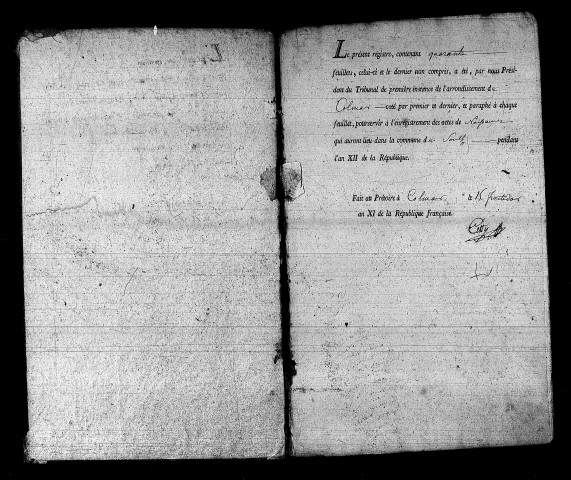 Le présent registre, contenant quarante
feuillets, celui-ci et le dernier non compris, a été, par nous Prési-
dent du Tribunal de première instance de l'arrondissement de
Colmar coté par premier et dernier, et paraphé à chaque
feuillet, pour servir à l'enregistrement des actes de Naissance
qui auront lieu dans la commune de Soultz pendant
l'an XII de la République.
Fait au Prétoire à Colmar le 15 fructidor
an XI de la République française.